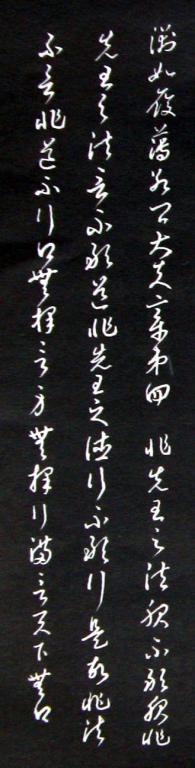 淵如履薄冰卿大夫章第四 非先王之法服不敢服非
先王之法言不敢道非先王之德行不敢行是故非法
不言非道不行口無擇言身無擇行滿言天下無口